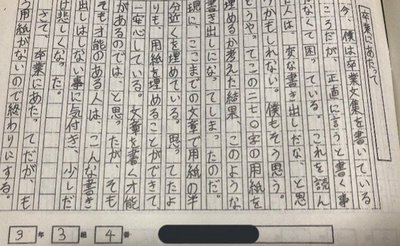 卒業にあたって
今、僕は卒業文集を書いている
ところだが、正直に言うと書く事
がなくて困っている。これを読ん
だ人は、変な書き出しだな、と思
うかもしれない。僕もそう思う。
どうやってこの二七〇字の用紙を
埋めるか考えた結果、このような
書き出しになってしまったのだ。
現に、ここまでの文章で用紙の半
分近くを埋めている。思ってたよ
りも、用紙を埋めることができて
安心している。文章を書く才能
があるのでは、と思ったが、そも
そも才能のある人は、こんな書き
出しはしない事に気付き、少しだ
け悲しくなった。
さて、卒業にあたってだが、も
う用紙がないので終わりにする。
3年3組4番